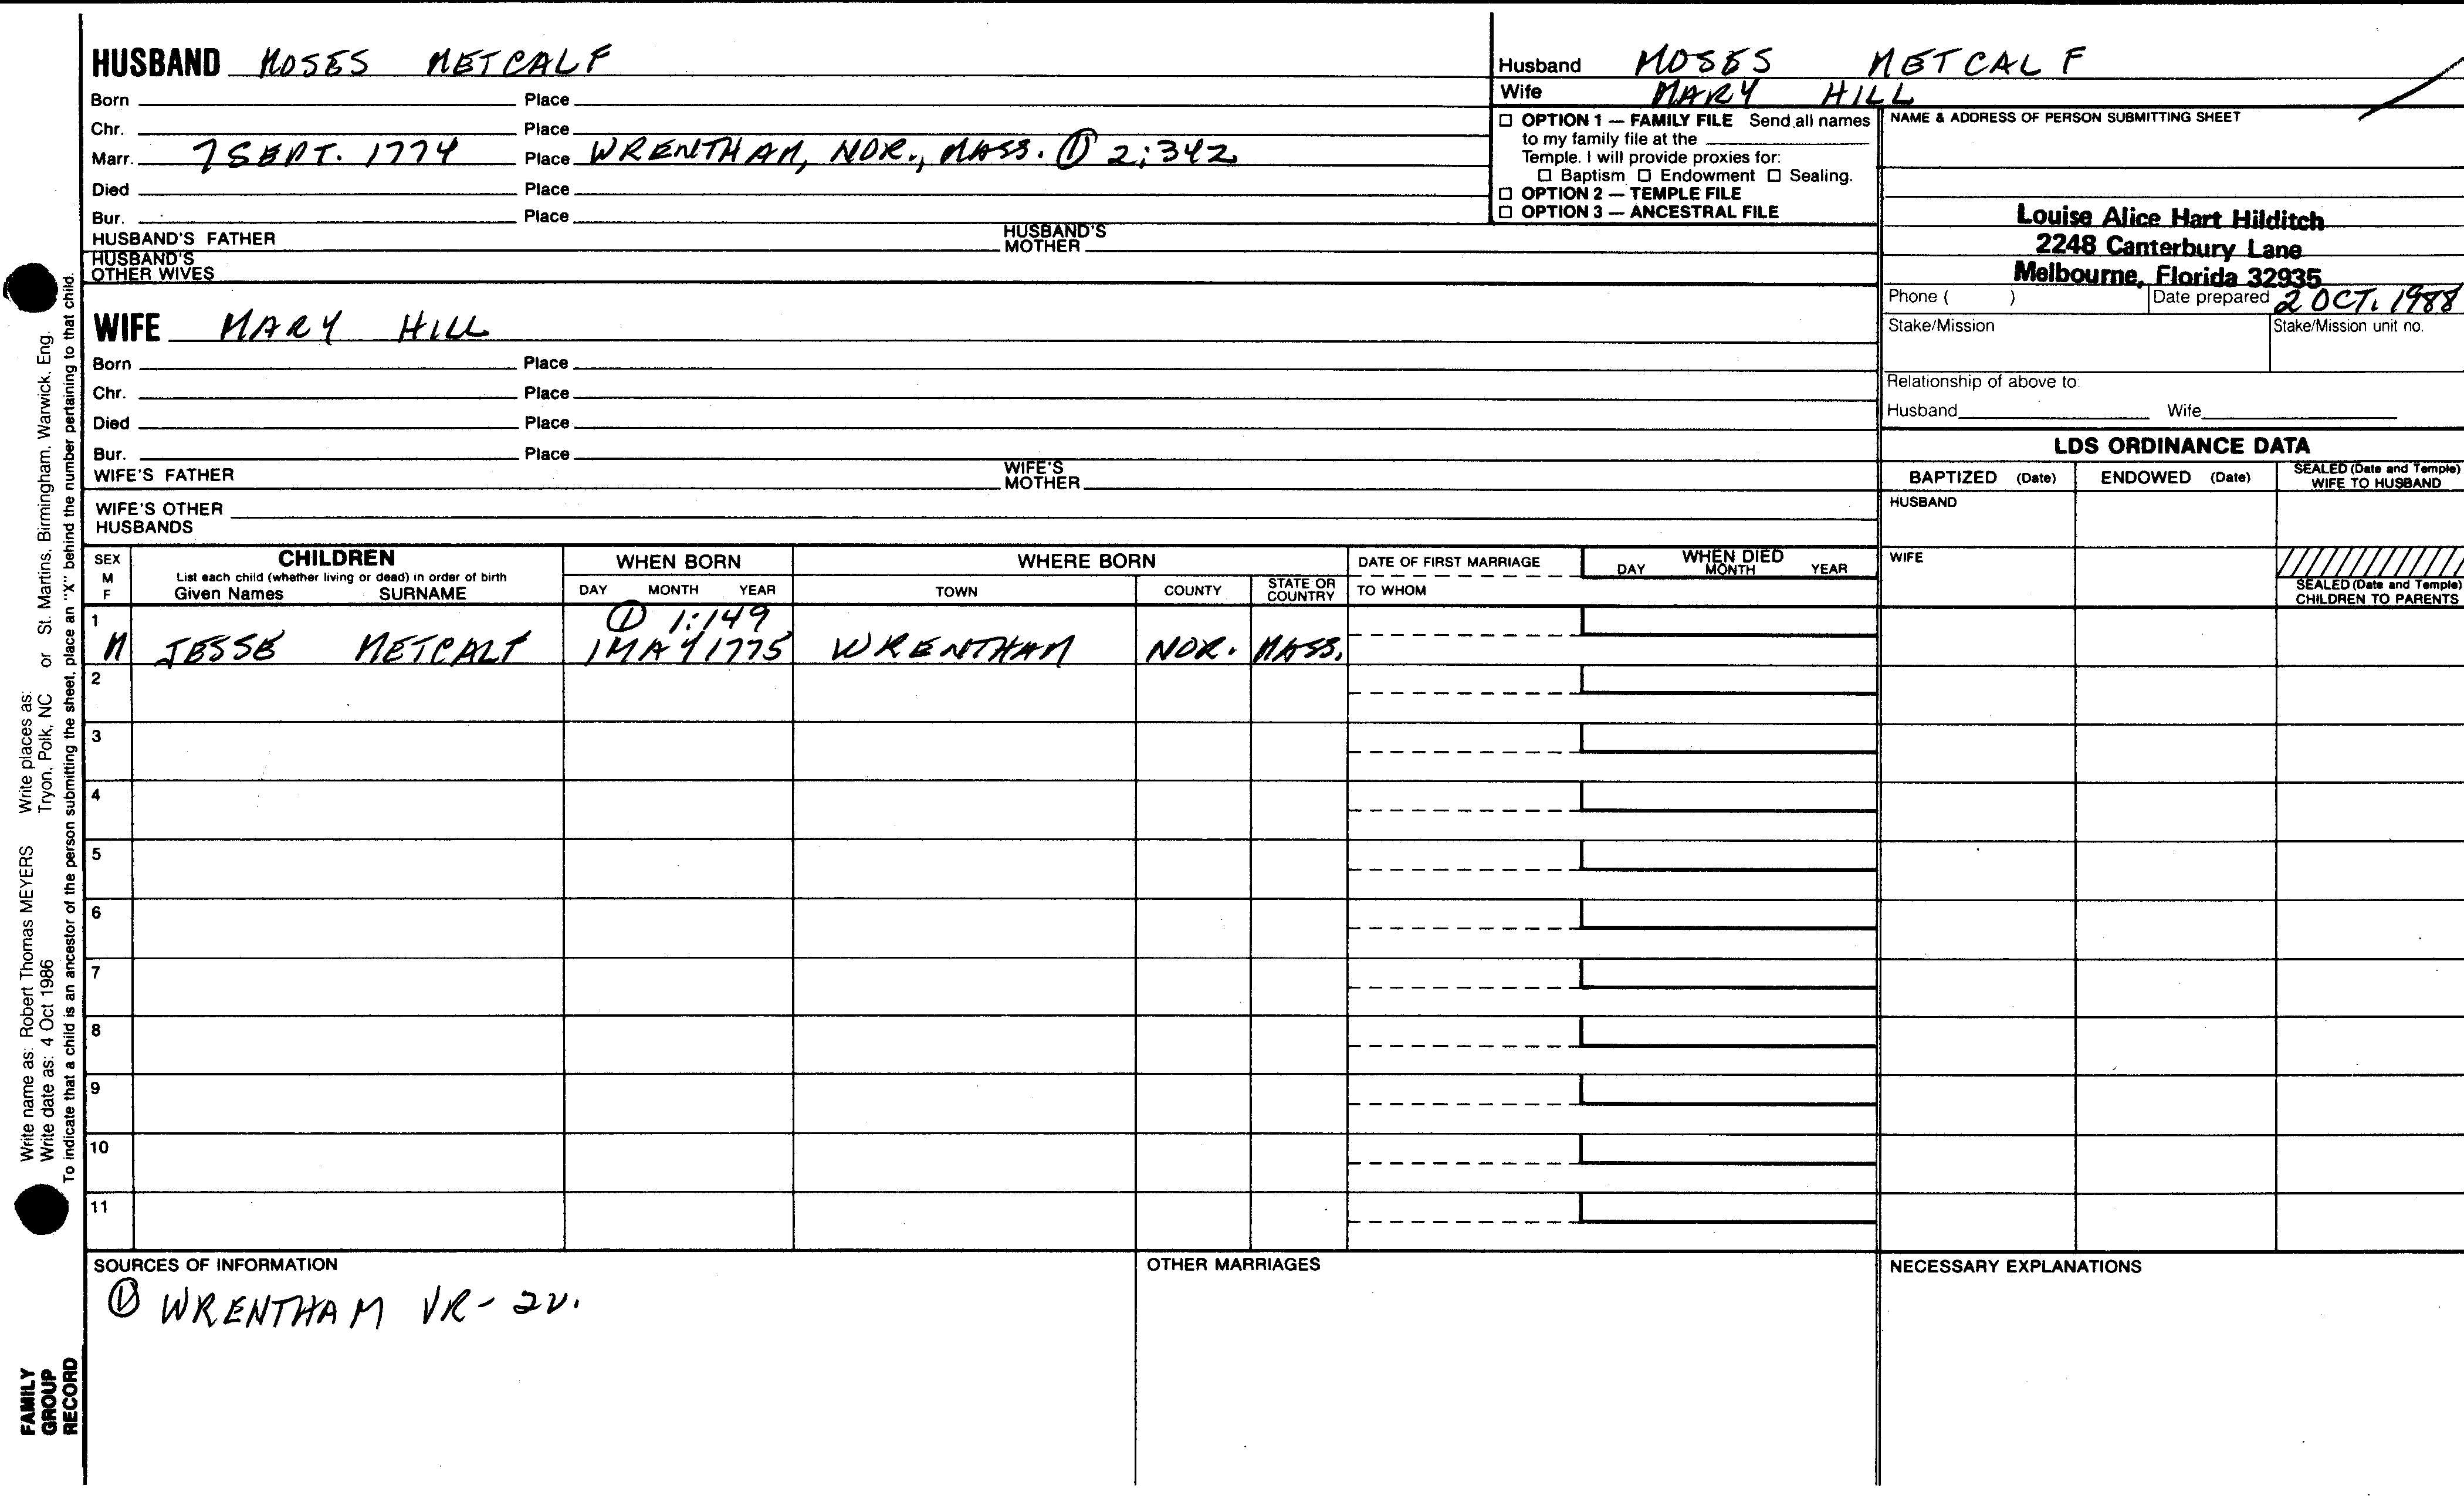 HUSBAND MOSES METCALF
Born Place
Chr. Place
Marr. 7 SEPT. 1774 Place WRENTHAM, NOR., MASS. ① 2:342
Died Place
Bur. Place
HUSBAND'S FATHER HUSBAND'S MOTHER
HUSBAND'S OTHER WIVES
Husband MOSES METCALF
Wife MARY HILL
☐ OPTION 1 — FAMILY FILE Send all names
to my family file at the
Temple. I will provide proxies for:
☐ Baptism ☐ Endowment ☐ Sealing.
☐ OPTION 2 — TEMPLE FILE
☐ OPTION 3 — ANCESTRAL FILE
NAME & ADDRESS OF PERSON SUBMITTING SHEET
Louise Alice Hart Hilditch
2248 Canterbury Lane
Melbourne, Florida 32935
Phone ( ) Date prepared 2 OCT. 1988
Stake/Mission Stake/Mission unit no.
Relationship of above to:
Husband Wife
WIFE MARY HILL
Born Place
Chr. Place
Died Place
Bur. Place
WIFE'S FATHER WIFE'S MOTHER
WIFE'S OTHER
HUSBANDS
LDS ORDINANCE DATA
BAPTIZED (Date) ENDOWED (Date) SEALED (Date and Temple) WIFE TO HUSBAND
HUSBAND
WIFE
SEALED (Date and Temple)
CHILDREN TO PARENTS
SEX M F
CHILDREN
List each child (whether living or dead) in order of birth
Given Names SURNAME
WHEN BORN
DAY MONTH YEAR
WHERE BORN
TOWN COUNTY STATE OR COUNTRY
DATE OF FIRST MARRIAGE
TO WHOM
WHEN DIED
DAY MONTH YEAR
1 ① 1:149
M JESSE METCALF 1 MAY 1775 WRENTHAM NOR. MASS.
2
3
4
5
6
7
8
9
10
11
SOURCES OF INFORMATION
① WRENTHAM VR - 2V.
OTHER MARRIAGES
NECESSARY EXPLANATIONS
Write name as: Robert Thomas MEYERS Write places as:
Write date as: 4 Oct 1986 Tryon, Polk, NC or St. Martins, Birmingham, Warwick, Eng.
To indicate that a child is an ancestor of the person submitting the sheet, place an "X" behind the number pertaining to that child.
FAMILY
GROUP
RECORD